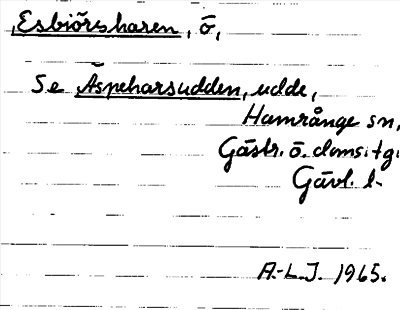 Esbiörsharen, ö,
Se Äspeharsudden, udde,
Hamrånge sn,
Gästr. ö. doms.tg.
Gävl. l.
A.-L.J. 1965.